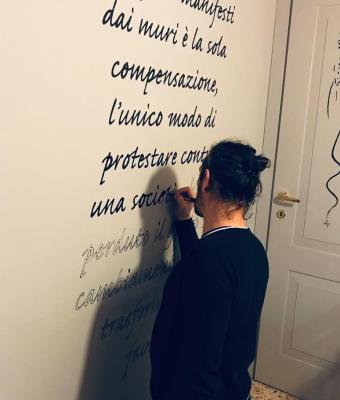 manifesti
dai muri è la sola
compensazione,
l'unico modo di
protestare cont
una societ
perduto il
cambiamen
trasfor
fac